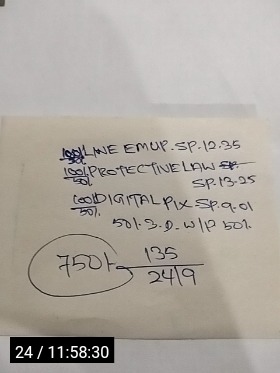 100/50% LINE EMUP. SP. 12.35
100/50% PROTECTIVE LAW
SP. 13.25
100/50% DIGITAL PIX SP. 9.01
50%. 3.D. W/P 50%
750/- 135
24/9
24 / 11:58:30